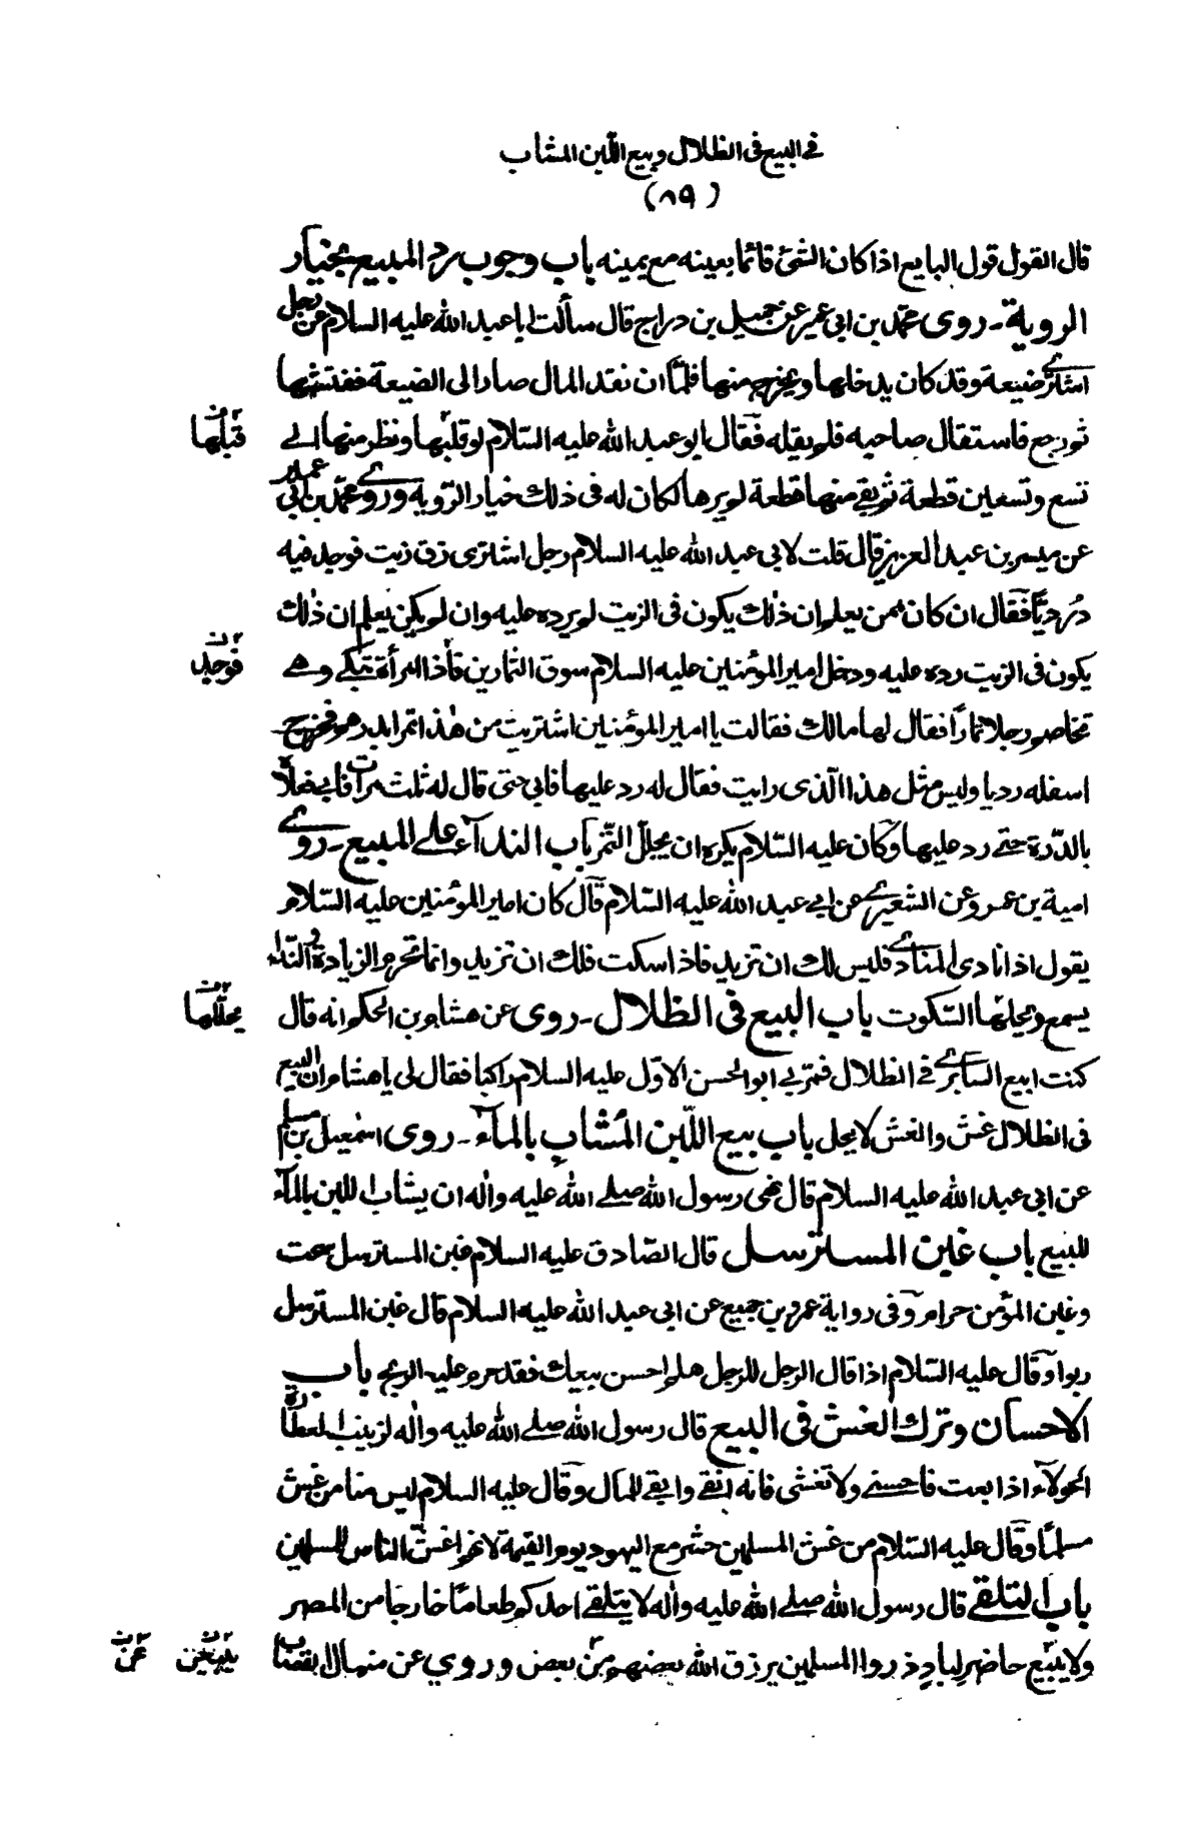 في البيع فى الظلال وبيع اللبن المشاب
(٨٩)
قال القول قول البايع اذا كان الشئ قائما بعينه مع يمينه باب وجوب رد المبيع بخيار
الروية ـ روى محمد بن ابى عمير عن جميل بن دراج قال سألت ابا عبد الله عليه السلام عن رجل
اشترى ضيعة وقد كان يدخلها ويخرج منها فلمّا ان نقد المال صار الى الضيعة ففتشها
ثم رجع فاستقال صاحبه فلم يقله فقال ابو عبد الله عليه السّلام لو قلّبها ونظر منها الى
قبّلها
تسع وتسعين قطعة ثم بقى منها قطعة لم يرها لكان له فى ذلك خيار الرّوية وروى محمّد بن ابى عمير
عن ميسر بن عبد العزيز قال قلت لابى عبد الله عليه السلام رجل اشترى زق زيت فوجد فيه
دُرديًّا فقال ان كان ممن يعلم ان ذلك يكون فى الزيت لم يرده عليه وان لم يكن يعلم ان ذلك
يكون فى الزيت رده عليه ودخل امير المؤمنين عليه السلام سوق التمارين فأذا امرأة تبكى وهى
فوجد
تخاصم رجلا تمارًا فقال لها مالك فقالت يا امير المؤمنين اشتريت من هذا تمرا بدرهم فخرج
اسفله رديا وليس مثل هذا الّذى رايت فقال له رد عليها فابى حتى قال له ثلث مرات فابى فعلاه
بالدّرة حتى رد عليها وكان عليه السّلام يكره ان يجلل التّمر باب الندآء على المبيع ـ روى
امية بن عمرو عن الشعيرى عن ابى عبد الله عليه السّلام قال كان امير المؤمنين عليه السّلام
يقول اذا نادى المنادى فليس لك ان تزيد فاذا سكت فلك ان تزيد وانما تحرم الزيادة والنّداء
يسمع ويحلها السّكوت باب البيع فى الظلال ـ روى عن هشام بن الحكم انه قال
يحلّلها
كنت ابيع السابرى فى الظلال فمر بى ابو الحسن الاوّل عليه السلام راكبا فقال لى يا هشام ان البيع
فى الظلال غش والغش لا يحل باب بيع اللّبن المُشاب بالمآء ـ روى اسمعيل بن مسلم
عن ابى عبد الله عليه السلام قال نهى رسول الله صلى الله عليه واله ان يشاب اللبن بالمآء
للبيع باب غبن المسترسل قال الصّادق عليه السلام غبن المسترسل سحت
وغبن المؤمن حرام وفى رواية عمرو بن جميع عن ابى عبد الله عليه السلام قال غبن المسترسل
ربوا وقال عليه السّلام اذا قال الرجل للرجل هلم احسن بيعك فقد حرم عليه الربح باب
الاحسان وترك الغش فى البيع قال رسول الله صلى الله عليه واله لزينب العطارة
الحولآء اذا بعت فاحسنى ولا تغشى فانه انقى وابقى للمال وقال عليه السلام ليس منا من غش
مسلمًا وقال عليه السّلام من غش المسلمين حشر مع اليهود يوم القيمة لانهم اغش الناس للمسلمين
باب التلقى قال رسول الله صلى الله عليه واله لا يتلقى احدكم طعامًا خارجا من المصر
ولا يبيع حاضر لبادٍ ذروا المسلمين يرزق الله بعضهم من بعض وروي عن منهال القصاب
عن